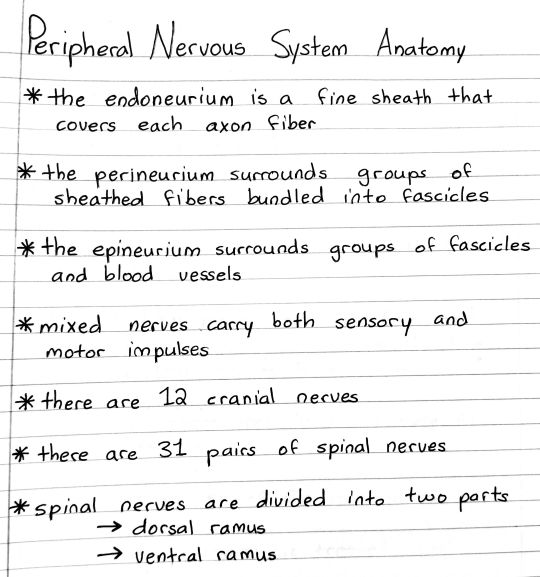 Peripheral Nervous System Anatomy
* the endoneurium is a fine sheath that
covers each axon fiber
* the perineurium surrounds groups of
sheathed fibers bundled into fascicles
* the epineurium surrounds groups of fascicles
and blood vessels
* mixed nerves carry both sensory and
motor impulses
* there are 12 cranial nerves
* there are 31 pairs of spinal nerves
* spinal nerves are divided into two parts
→ dorsal ramus
→ ventral ramus